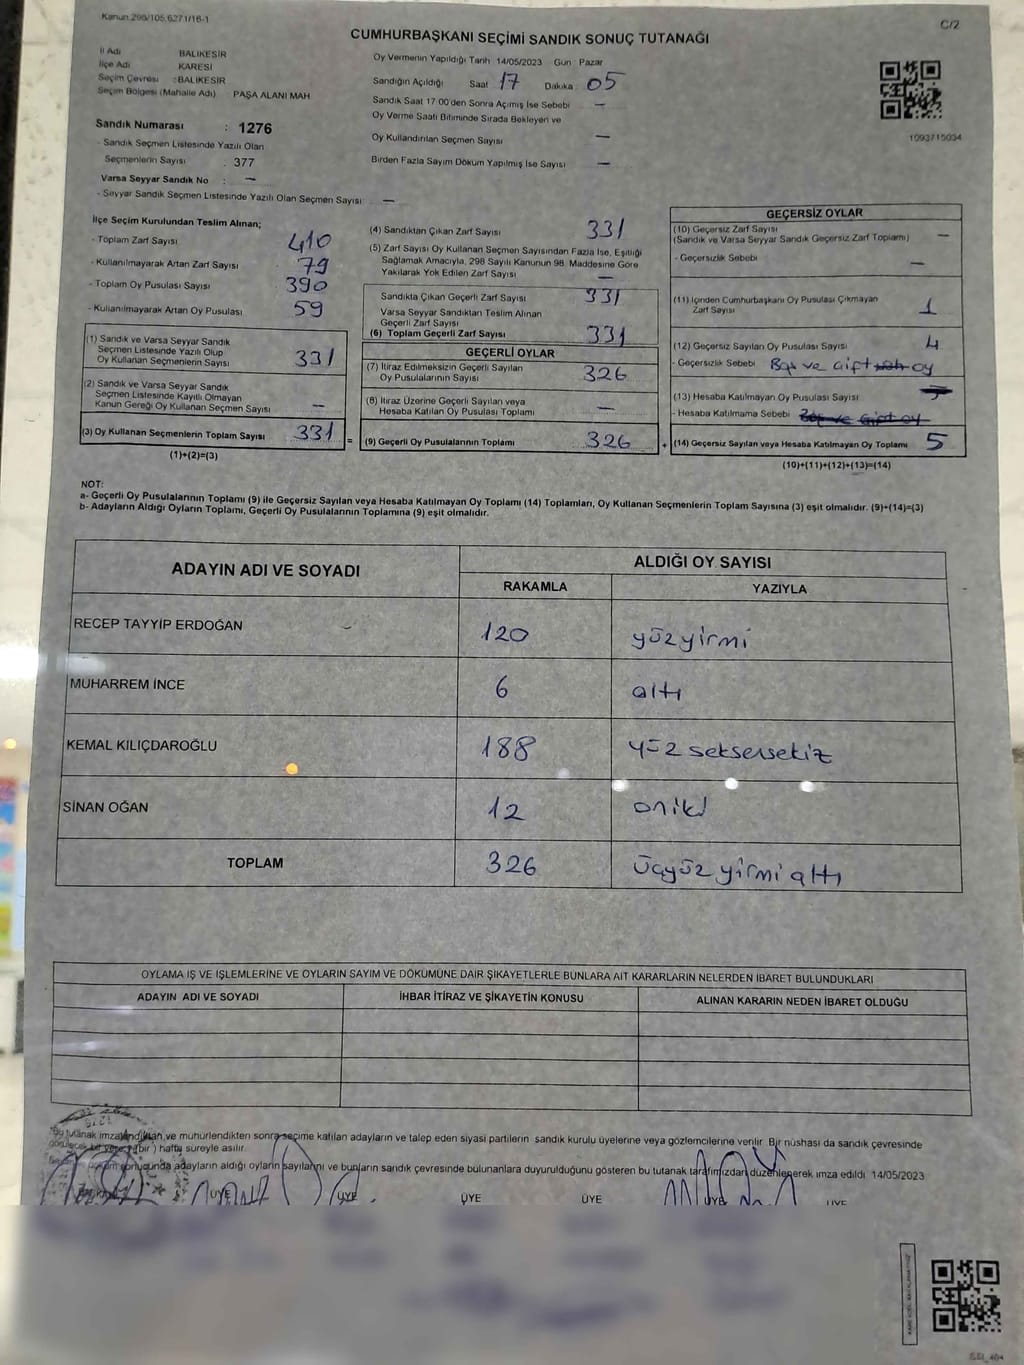 Kanun 298/105,6271/16-1
C/2
CUMHURBAŞKANI SEÇİMİ SANDIK SONUÇ TUTANAĞI
İl Adı BALIKESİR
İlçe Adı KARESİ
Seçim Çevresi : BALIKESİR
Seçim Bölgesi (Mahalle Adı) PAŞA ALANI MAH
Sandık Numarası : 1276
- Sandık Seçmen Listesinde Yazılı Olan
Seçmenlerin Sayısı : 377
Varsa Seyyar Sandık No : —
- Seyyar Sandık Seçmen Listesinde Yazılı Olan Seçmen Sayısı: —
Oy Vermenin Yapıldığı Tarih 14/05/2023 Gün Pazar
Sandığın Açıldığı Saat 17 Dakika 05
Sandık Saat 17 00'den Sonra Açımış İse Sebebi —
Oy Verme Saati Bitiminde Sırada Bekleyen ve
Oy Kullandırılan Seçmen Sayısı —
Birden Fazla Sayım Döküm Yapılmış İse Sayısı —
1093715034
İlçe Seçim Kurulundan Teslim Alınan;
- Toplam Zarf Sayısı 410
- Kullanılmayarak Artan Zarf Sayısı 79
- Toplam Oy Pusulası Sayısı 390
- Kullanılmayarak Artan Oy Pusulası 59
(1) Sandık ve Varsa Seyyar Sandık
Seçmen Listesinde Yazılı Olup
Oy Kullanan Seçmenlerin Sayısı 331
(2) Sandık ve Varsa Seyyar Sandık
Seçmen Listesinde Kayıtlı Olmayan
Kanun Gereği Oy Kullanan Seçmen Sayısı —
(3) Oy Kullanan Seçmenlerin Toplam Sayısı 331 =
(1)+(2)=(3)
(4) Sandıktan Çıkan Zarf Sayısı 331
(5) Zarf Sayısı Oy Kullanan Seçmen Sayısından Fazla İse, Eşitliği
Sağlamak Amacıyla, 298 Sayılı Kanunun 98. Maddesine Göre
Yakılarak Yok Edilen Zarf Sayısı —
Sandıkta Çıkan Geçerli Zarf Sayısı 331
Varsa Seyyar Sandıktan Teslim Alınan
Geçerli Zarf Sayısı
(6) Toplam Geçerli Zarf Sayısı 331
GEÇERLİ OYLAR
(7) İtiraz Edilmeksizin Geçerli Sayılan
Oy Pusulalarının Sayısı 326
(8) İtiraz Üzerine Geçerli Sayılan veya
Hesaba Katılan Oy Pusulası Toplamı —
(9) Geçerli Oy Pusulalarının Toplamı 326 +
GEÇERSİZ OYLAR
(10) Geçersiz Zarf Sayısı
(Sandık ve Varsa Seyyar Sandık Geçersiz Zarf Toplamı) —
- Geçersizlik Sebebi —
(11) İçinden Cumhurbaşkanı Oy Pusulası Çıkmayan
Zarf Sayısı 1
(12) Geçersiz Sayılan Oy Pusulası Sayısı 4
- Geçersizlik Sebebi Boş ve çift oy
(13) Hesaba Katılmayan Oy Pusulası Sayısı
- Hesaba Katılmama Sebebi
(14) Geçersiz Sayılan veya Hesaba Katılmayan Oy Toplamı 5
(10)+(11)+(12)+(13)=(14)
NOT:
a- Geçerli Oy Pusulalarının Toplamı (9) ile Geçersiz Sayılan veya Hesaba Katılmayan Oy Toplamı (14) Toplamları, Oy Kullanan Seçmenlerin Toplam Sayısına (3) eşit olmalıdır. (9)+(14)=(3)
b- Adayların Aldığı Oyların Toplamı, Geçerli Oy Pusulalarının Toplamına (9) eşit olmalıdır.
ADAYIN ADI VE SOYADI
ALDIĞI OY SAYISI
RAKAMLA YAZIYLA
RECEP TAYYİP ERDOĞAN 120 yüzyirmi
MUHARREM İNCE 6 altı
KEMAL KILIÇDAROĞLU 188 yüz seksensekiz
SİNAN OĞAN 12 oniki
TOPLAM 326 üçyüz yirmi altı
OYLAMA İŞ VE İŞLEMLERİNE VE OYLARIN SAYIM VE DÖKÜMÜNE DAİR ŞİKAYETLERLE BUNLARA AİT KARARLARIN NELERDEN İBARET BULUNDUKLARI
ADAYIN ADI VE SOYADI İHBAR İTİRAZ VE ŞİKAYETİN KONUSU ALINAN KARARIN NEDEN İBARET OLDUĞU
Bu tutanak imzalandıktan ve mühürlendikten sonra seçime katılan adayların ve talep eden siyasi partilerin sandık kurulu üyelerine veya gözlemcilerine verilir. Bir nüshası da sandık çevresinde
(bir) hafta süreyle asılır.
sonucunda adayların aldığı oyların sayılarını ve bunların sandık çevresinde bulunanlara duyurulduğunu gösteren bu tutanak tarafımızdan düzenlenerek imza edildi 14/05/2023
ÜYE ÜYE ÜYE ÜYE ÜYE ÜYE